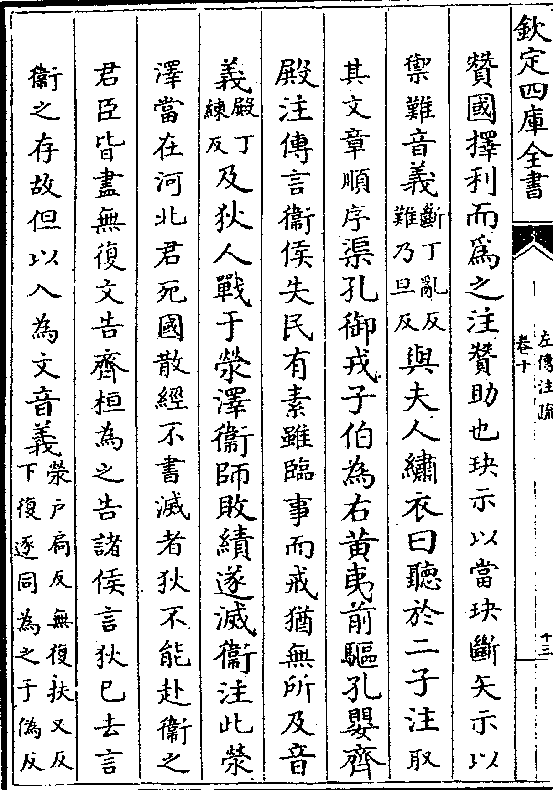 欽定四庫全書
左傳注疏
卷十
十三
贊國擇利而為之注贊助也玦示以當玦斷矢示以
禦難音義斷丁亂反難乃旦反與夫人繡衣曰聽於二子注取
其文章順序渠孔御戎子伯為右黄夷前驅孔嬰齊
殿注傳言衞侯失民有素雖臨事而戒猶無所及音
義殿丁練反及狄人戰于熒澤衞師敗績遂滅衞注此熒
澤當在河北君死國散經不書滅者狄不能赴衞之
君臣皆盡無復文告齊桓為之告諸侯言狄已去言
衞之存故但以入為文音義熒户扃反無復扶又反下復逐同為之于偽反